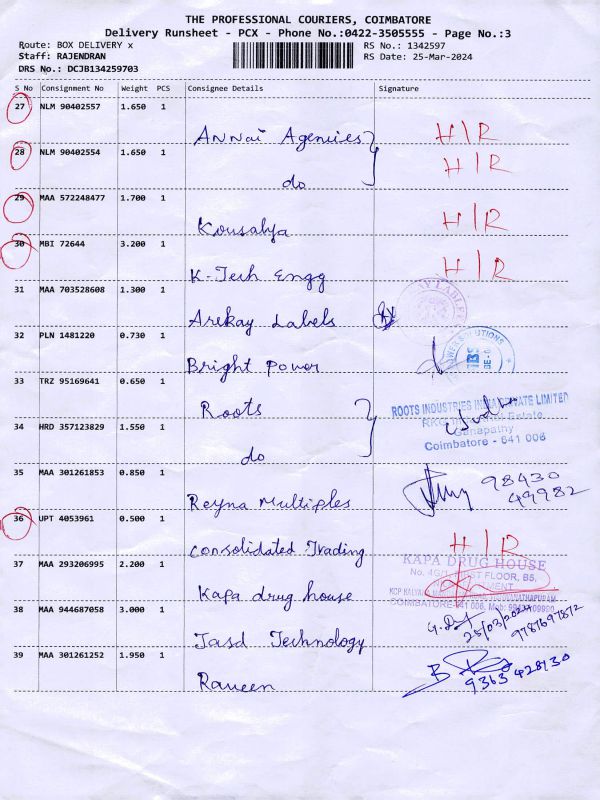 THE PROFESSIONAL COURIERS, COIMBATORE
Delivery Runsheet - PCX - Phone No.:0422-3505555 - Page No.:3
Route: BOX DELIVERY x
RS No.: 1342597
Staff: RAJENDRAN
RS Date: 25-Mar-2024
DRS No.: DCJB134259703
S No Consignment No Weight PCS Consignee Details Signature
27 NLM 90402557 1.650 1
Annai Agencies H/R
28 NLM 90402554 1.650 1
do H/R
29 MAA 572248477 1.700 1
Kousalya H/R
30 MBI 72644 3.200 1
K-Tech Engg H/R
31 MAA 703528608 1.300 1
Arekay Labels
32 PLN 1481220 0.730 1
Bright Power
33 TRZ 95169641 0.650 1
Roots
ROOTS INDUSTRIES INDIA PRIVATE LIMITED
Ganapathy
Coimbatore - 641 006
34 HRD 357123829 1.550 1
do
35 MAA 301261853 0.850 1
Reyna Multiples
98430
49982
36 UPT 4053961 0.500 1
Consolidated Trading H/R
37 MAA 293206995 2.200 1
Kapa drug house
KAPA DRUG HOUSE
COIMBATORE-641 006
38 MAA 944687058 3.000 1
Jasd Technology
25/03/2024
9787697872
39 MAA 301261252 1.950 1
Raveen
9363 428730